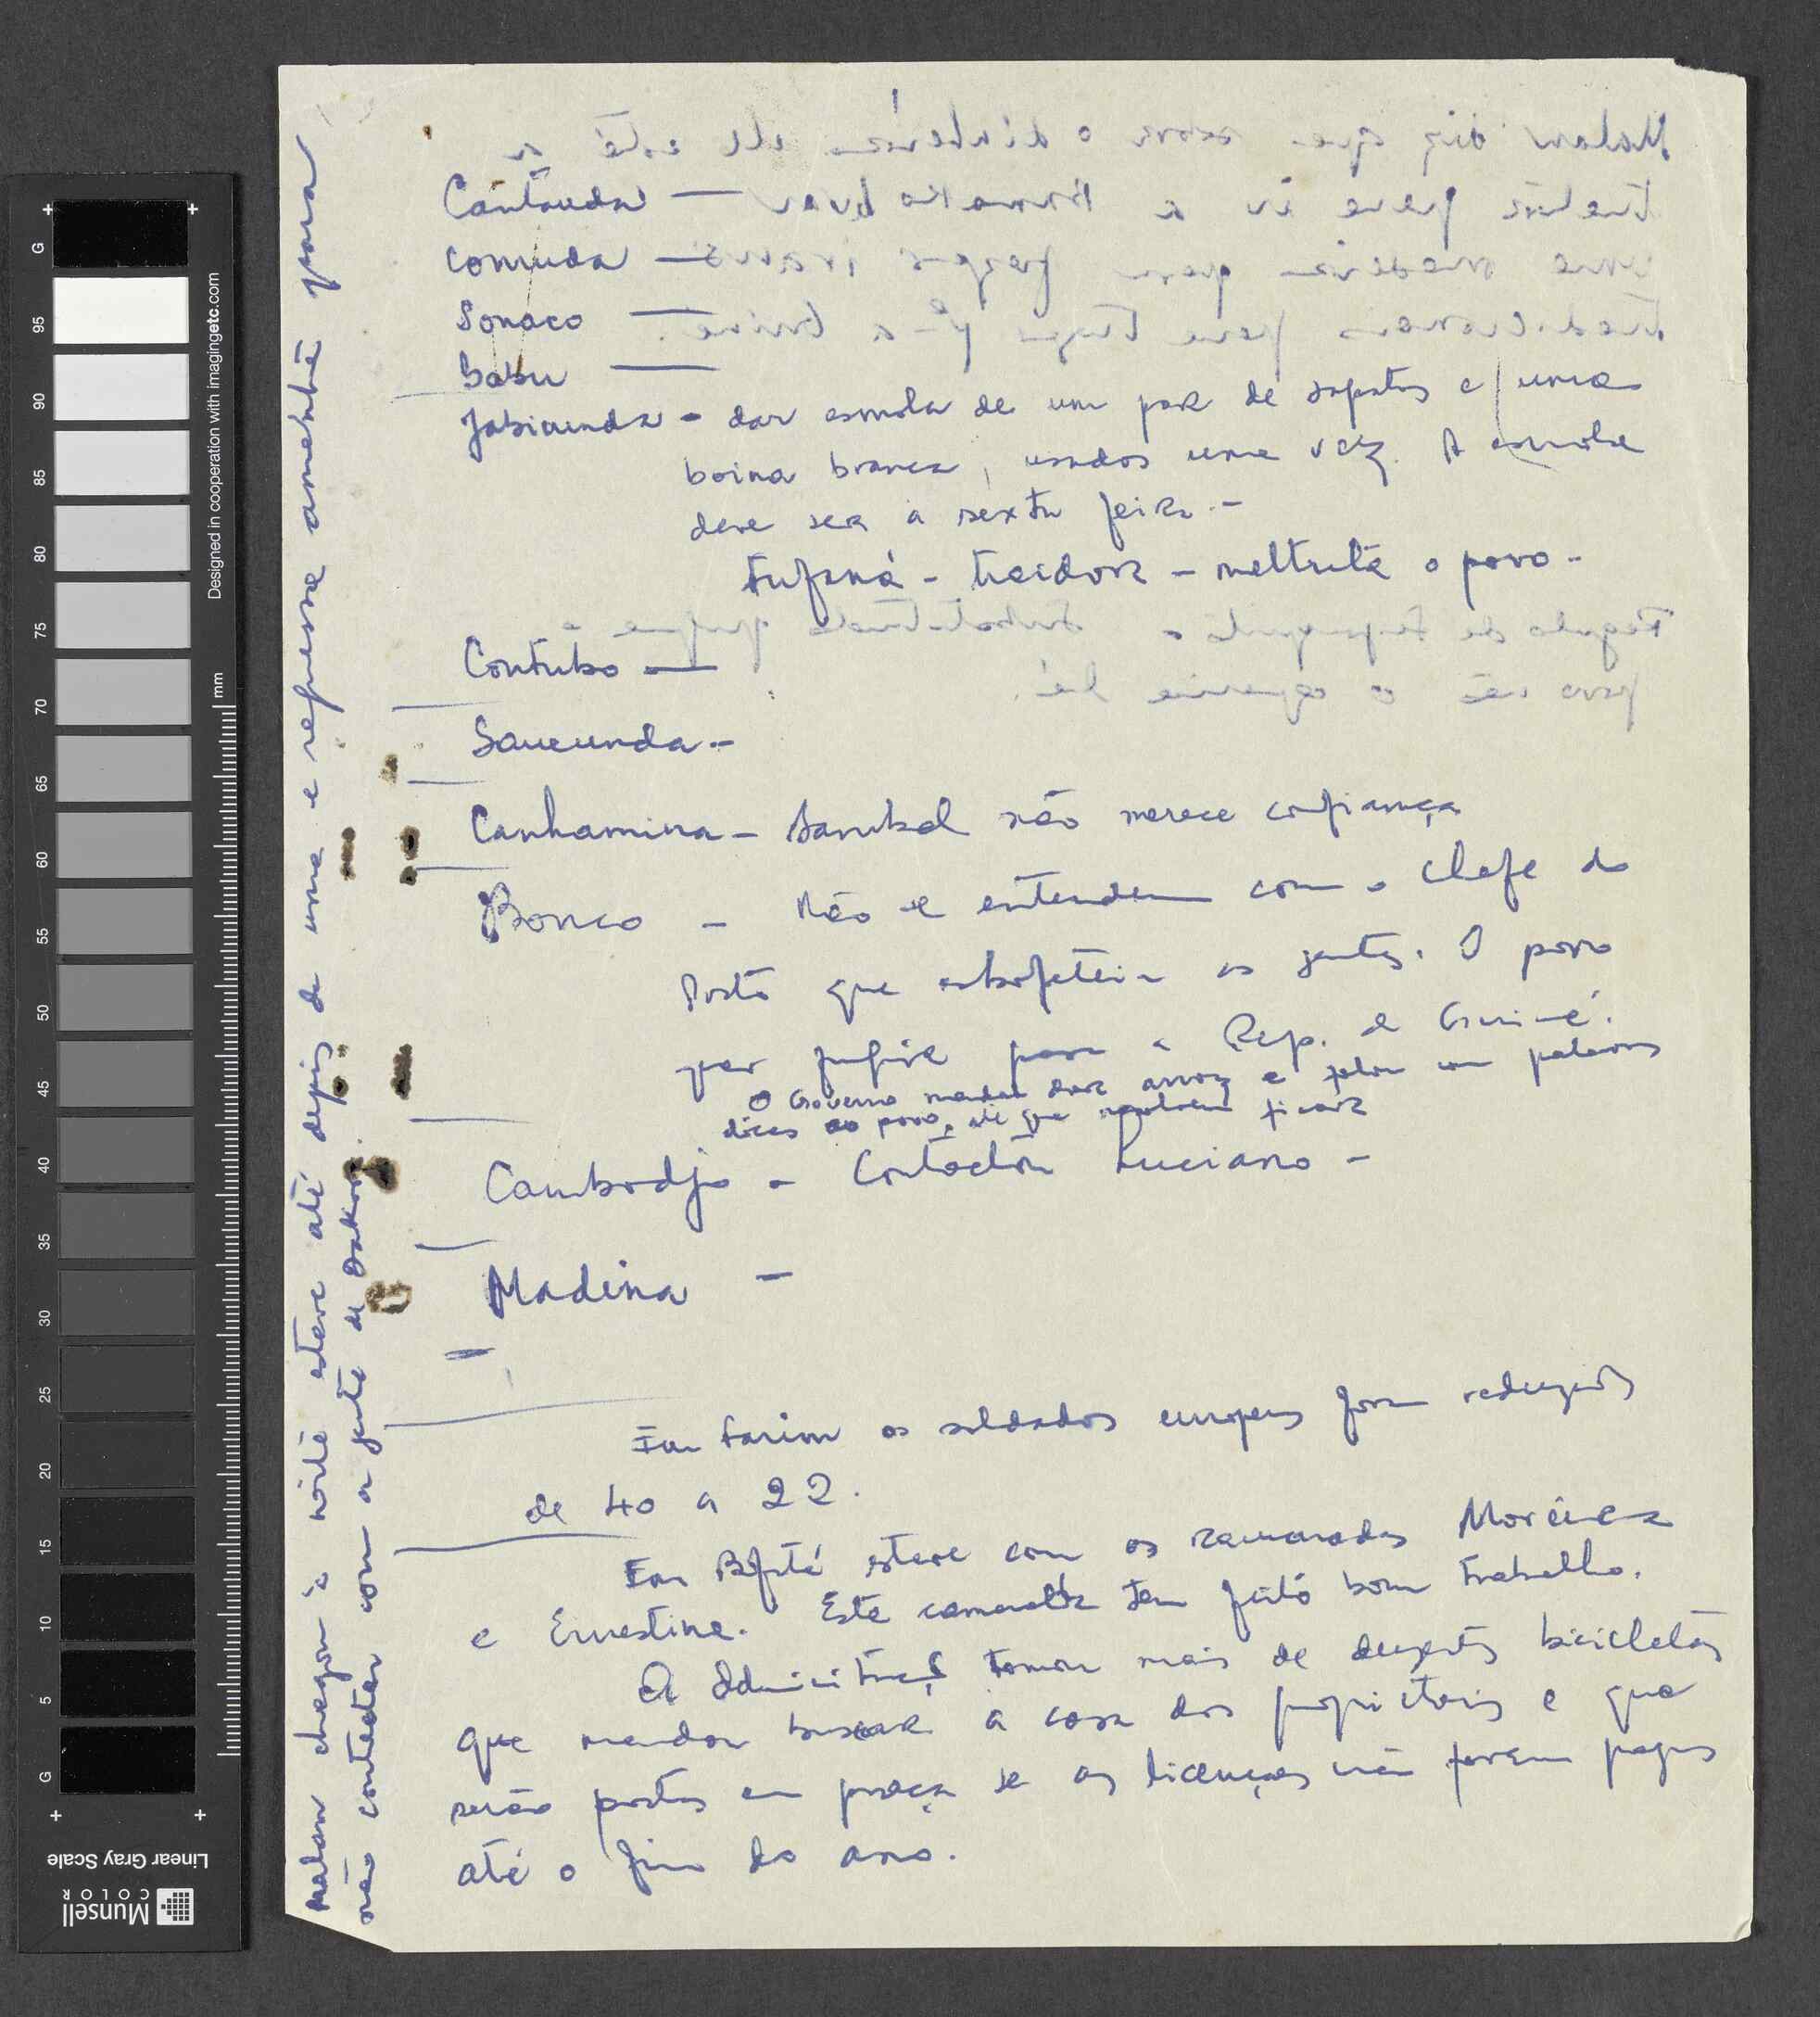 Cantauda —
comuda —
Sonaco —
Babu —
Jabicunda - dar esmola de um par de sapatos e uma
boina branca, usados uma vez. A esmola
deve ser a sexta feira.-
Fufaná - traidor - maltrata o povo -
Contubo —
Saucunda -
Canhamina - Sambel não merece confiança
Bonco - Não se entendem com o chefe do
Posto que esbofeteia as gentes. O povo
quer fugir para a Rep. da Guiné.
O Governo mandou dar arroz e falou com palavras
doces ao povo, até que resolveram ficar
Cambodjo - Contactou Luciano -
Madina -
=
Em Farim os soldados europeus foram reduzidos
de 40 a 22.
Em Bafatá esteve com os camaradas Moreira
e Ernestina. Este camarada tem feito bom trabalho.
A Administraç tomou mais de duzentas bicicletas
que mandou buscar a casa dos proprietários e que
serão postas em praça se as licenças não forem pagas
até o fim do ano.
Malam chegou à noite esteve até depois de uma e regressa amanhã para
não contactar com a gente de Dakar.
Malam diz que sobre o dinheiro ele está a
para ir a levar
uma para fazer
tradicionais para
Régulo de substituído porque o
povo não o queria lá.
G
95
90
85
80
75
70
65
60
55
50
45
40
35
30
25
20
15
10
5
G
mm
Designed in cooperation with imagingetc.com
Linear Gray Scale
Munsell
COLOR